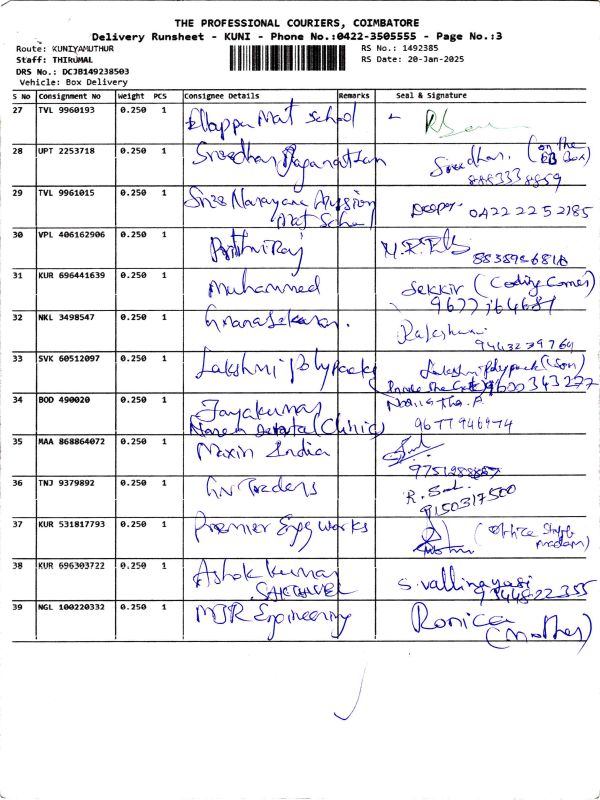 THE PROFESSIONAL COURIERS, COIMBATORE
Delivery Runsheet - KUNI - Phone No.:0422-3505555 - Page No.:3
Route: KUNIYAMUTHUR RS No.: 1492385
Staff: THIRUMAL RS Date: 20-Jan-2025
DRS No.: DCJB149238503
Vehicle: Box Delivery
S No Consignment No Weight PCS Consignee Details Remarks Seal & Signature
27 TVL 9960193 0.250 1 Ellappa Mat School -
28 UPT 2253718 0.250 1 Sreedhar Jaganathan Sreedhar. (on the EB Box)
29 TVL 9961015 0.250 1 Sree Narayana Mission 0422 2252185
Mat School
30 VPL 406162906 0.250 1 Prithviraj
31 KUR 696441639 0.250 1 Muhammed Sekkir (Coding Corner)
32 NKL 3498547 0.250 1 Gnanasekaran.
33 SVK 60512097 0.250 1 Lakshmi Polypacks Lakshmi Polypack (Son)
9600343277
34 BOD 490020 0.250 1 Jayakumar
(Clinic) 9677946974
35 MAA 868864072 0.250 1 Maxin India
36 TNJ 9379892 0.250 1 GN Traders
9150317500
37 KUR 531817793 0.250 1 Premier Engg works (Office Staff madam)
38 KUR 696303722 0.250 1 Ashok kumar S. Vallinayagi
39 NGL 100220332 0.250 1 MJR Engineering Ronica
(Mother)